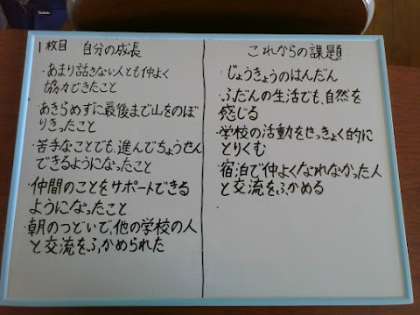 1枚目 自分の成長
・あまり話さない人とも仲よく
協力できたこと
・あきらめずに最後まで山をのぼ
りきったこと
・苦手なことでも、進んでちょうせん
できるようになったこと
・仲間のことをサポートできる
ようになったこと
・朝のつどいで、他の学校の人
と交流をふかめられた
これならの課題
・じょうきょうのはんだん
・ふだんの生活でも、自然を
感じる
・学校の活動をせっきょく的に
とりくむ
・宿泊で仲よくなれなかった人
と交流をふかめる
・